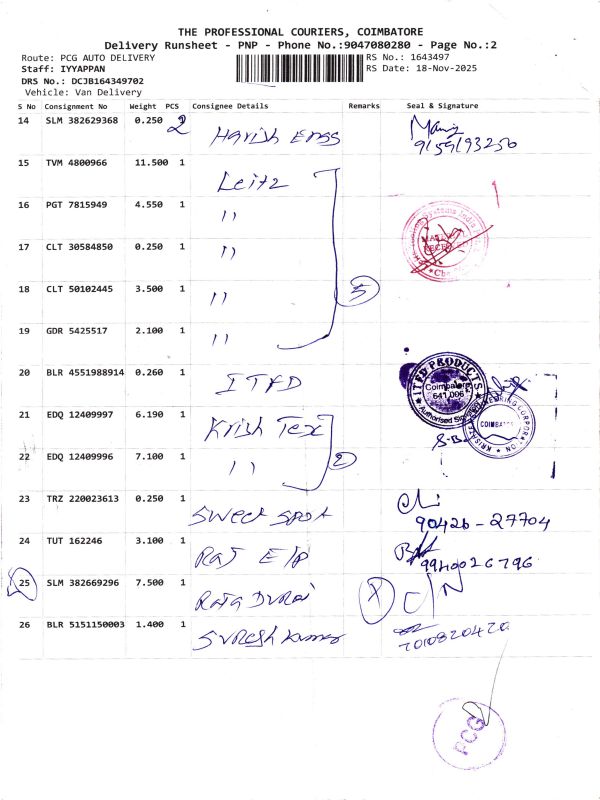 THE PROFESSIONAL COURIERS, COIMBATORE
Delivery Runsheet - PNP - Phone No.:9047080280 - Page No.:2
Route: PCG AUTO DELIVERY
RS No.: 1643497
Staff: IYYAPPAN
RS Date: 18-Nov-2025
DRS No.: DCJB164349702
Vehicle: Van Delivery
S No Consignment No Weight PCS Consignee Details Remarks Seal & Signature
14 SLM 382629368 0.250 2 Harish
15 TVM 4800966 11.500 1 Leitz
16 PGT 7815949 4.550 1 "
17 CLT 30584850 0.250 1 "
18 CLT 50102445 3.500 1 " 5
19 GDR 5425517 2.100 1 "
20 BLR 4551988914 0.260 1 ITFD
ITFD PRODUCTS
Coimbatore
641 006
21 EDQ 12409997 6.190 1 Krish Tex
22 EDQ 12409996 7.100 1 " 2
S.B.
23 TRZ 220023613 0.250 1 Sweet spot
90426-27704
24 TUT 162246 3.100 1 Raj
9940026796
25 SLM 382669296 7.500 1 Raja Durai
26 BLR 5151150003 1.400 1 Suresh kumar
7010820420
PCG